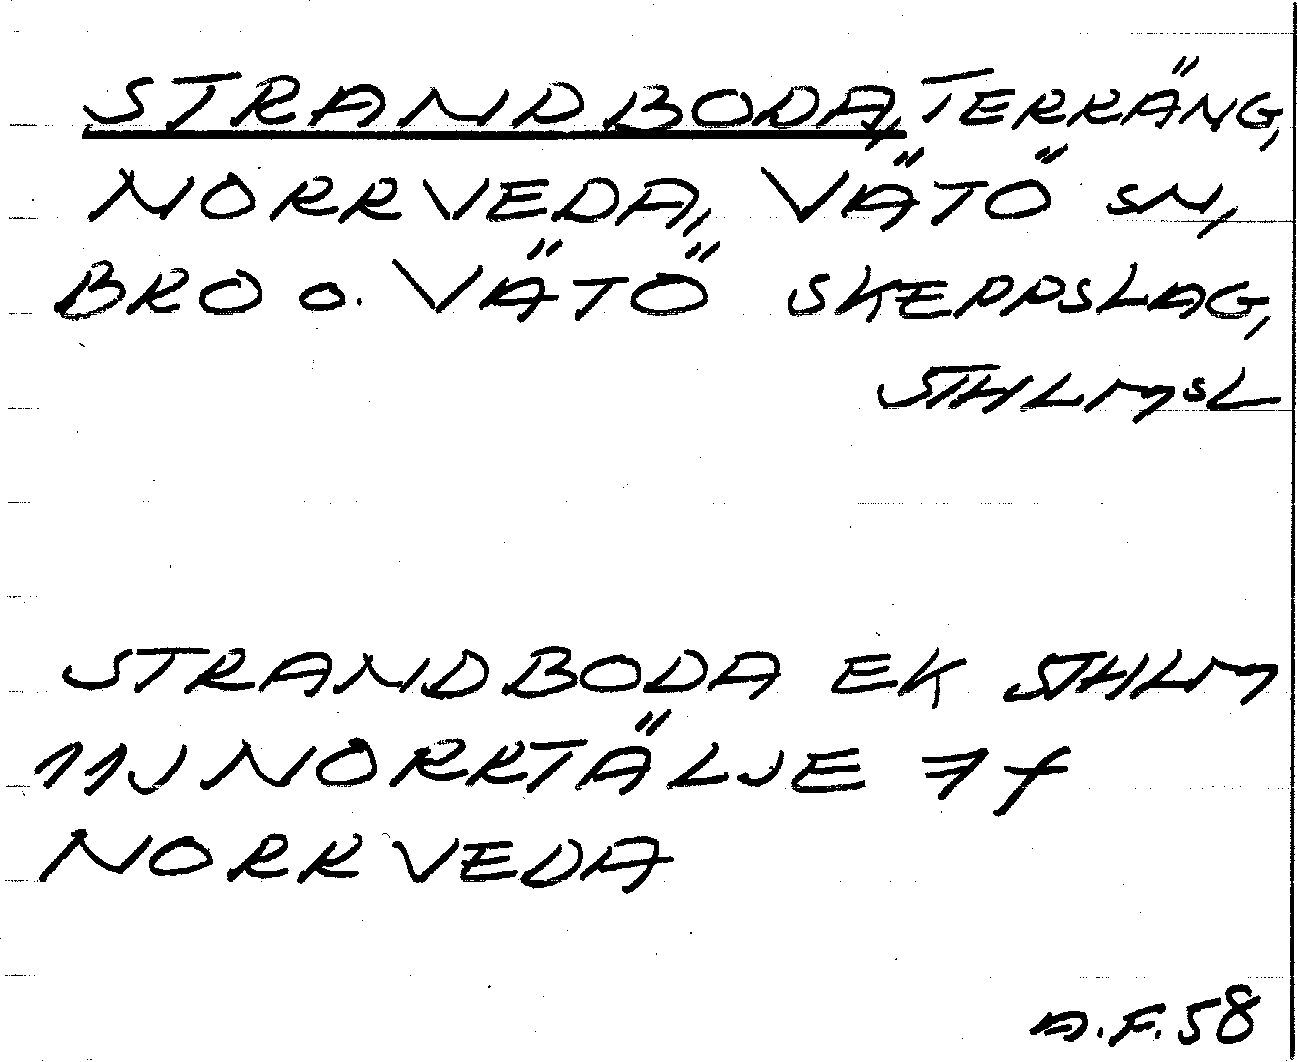 STRANDBODA, TERRÄNG,
NORRVEDA, VÄTÖ SN,
BRO O. VÄTÖ SKEPPSLAG,
STHLMSL
STRANDBODA EK STHLM
11J NORRTÄLJE 7f
NORRVEDA
A.F. 58